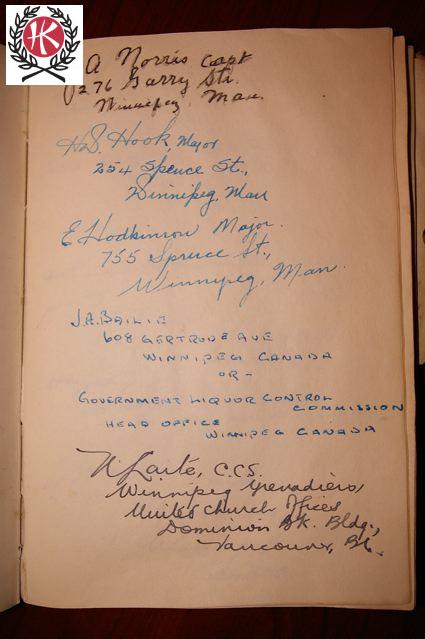 HK
A Norris Capt
276 Garry Str.
Winnipeg, Man.
H.S. Hook, Major
254 Spence St.,
Winnipeg, Man
E Hodkinson Major.
755 Spruce St.,
Winnipeg, Man.
J.A. BAILIE
608 GERTRUDE AVE
WINNIPEG CANADA
OR -
GOVERNMENT LIQUOR CONTROL
COMMISSION
HEAD OFFICE
WINNIPEG CANADA
Laite, C.C.S.
Winnipeg Grenadiers
United Church Offices
Dominion BK. Bldg.,
Vancouver, BC.